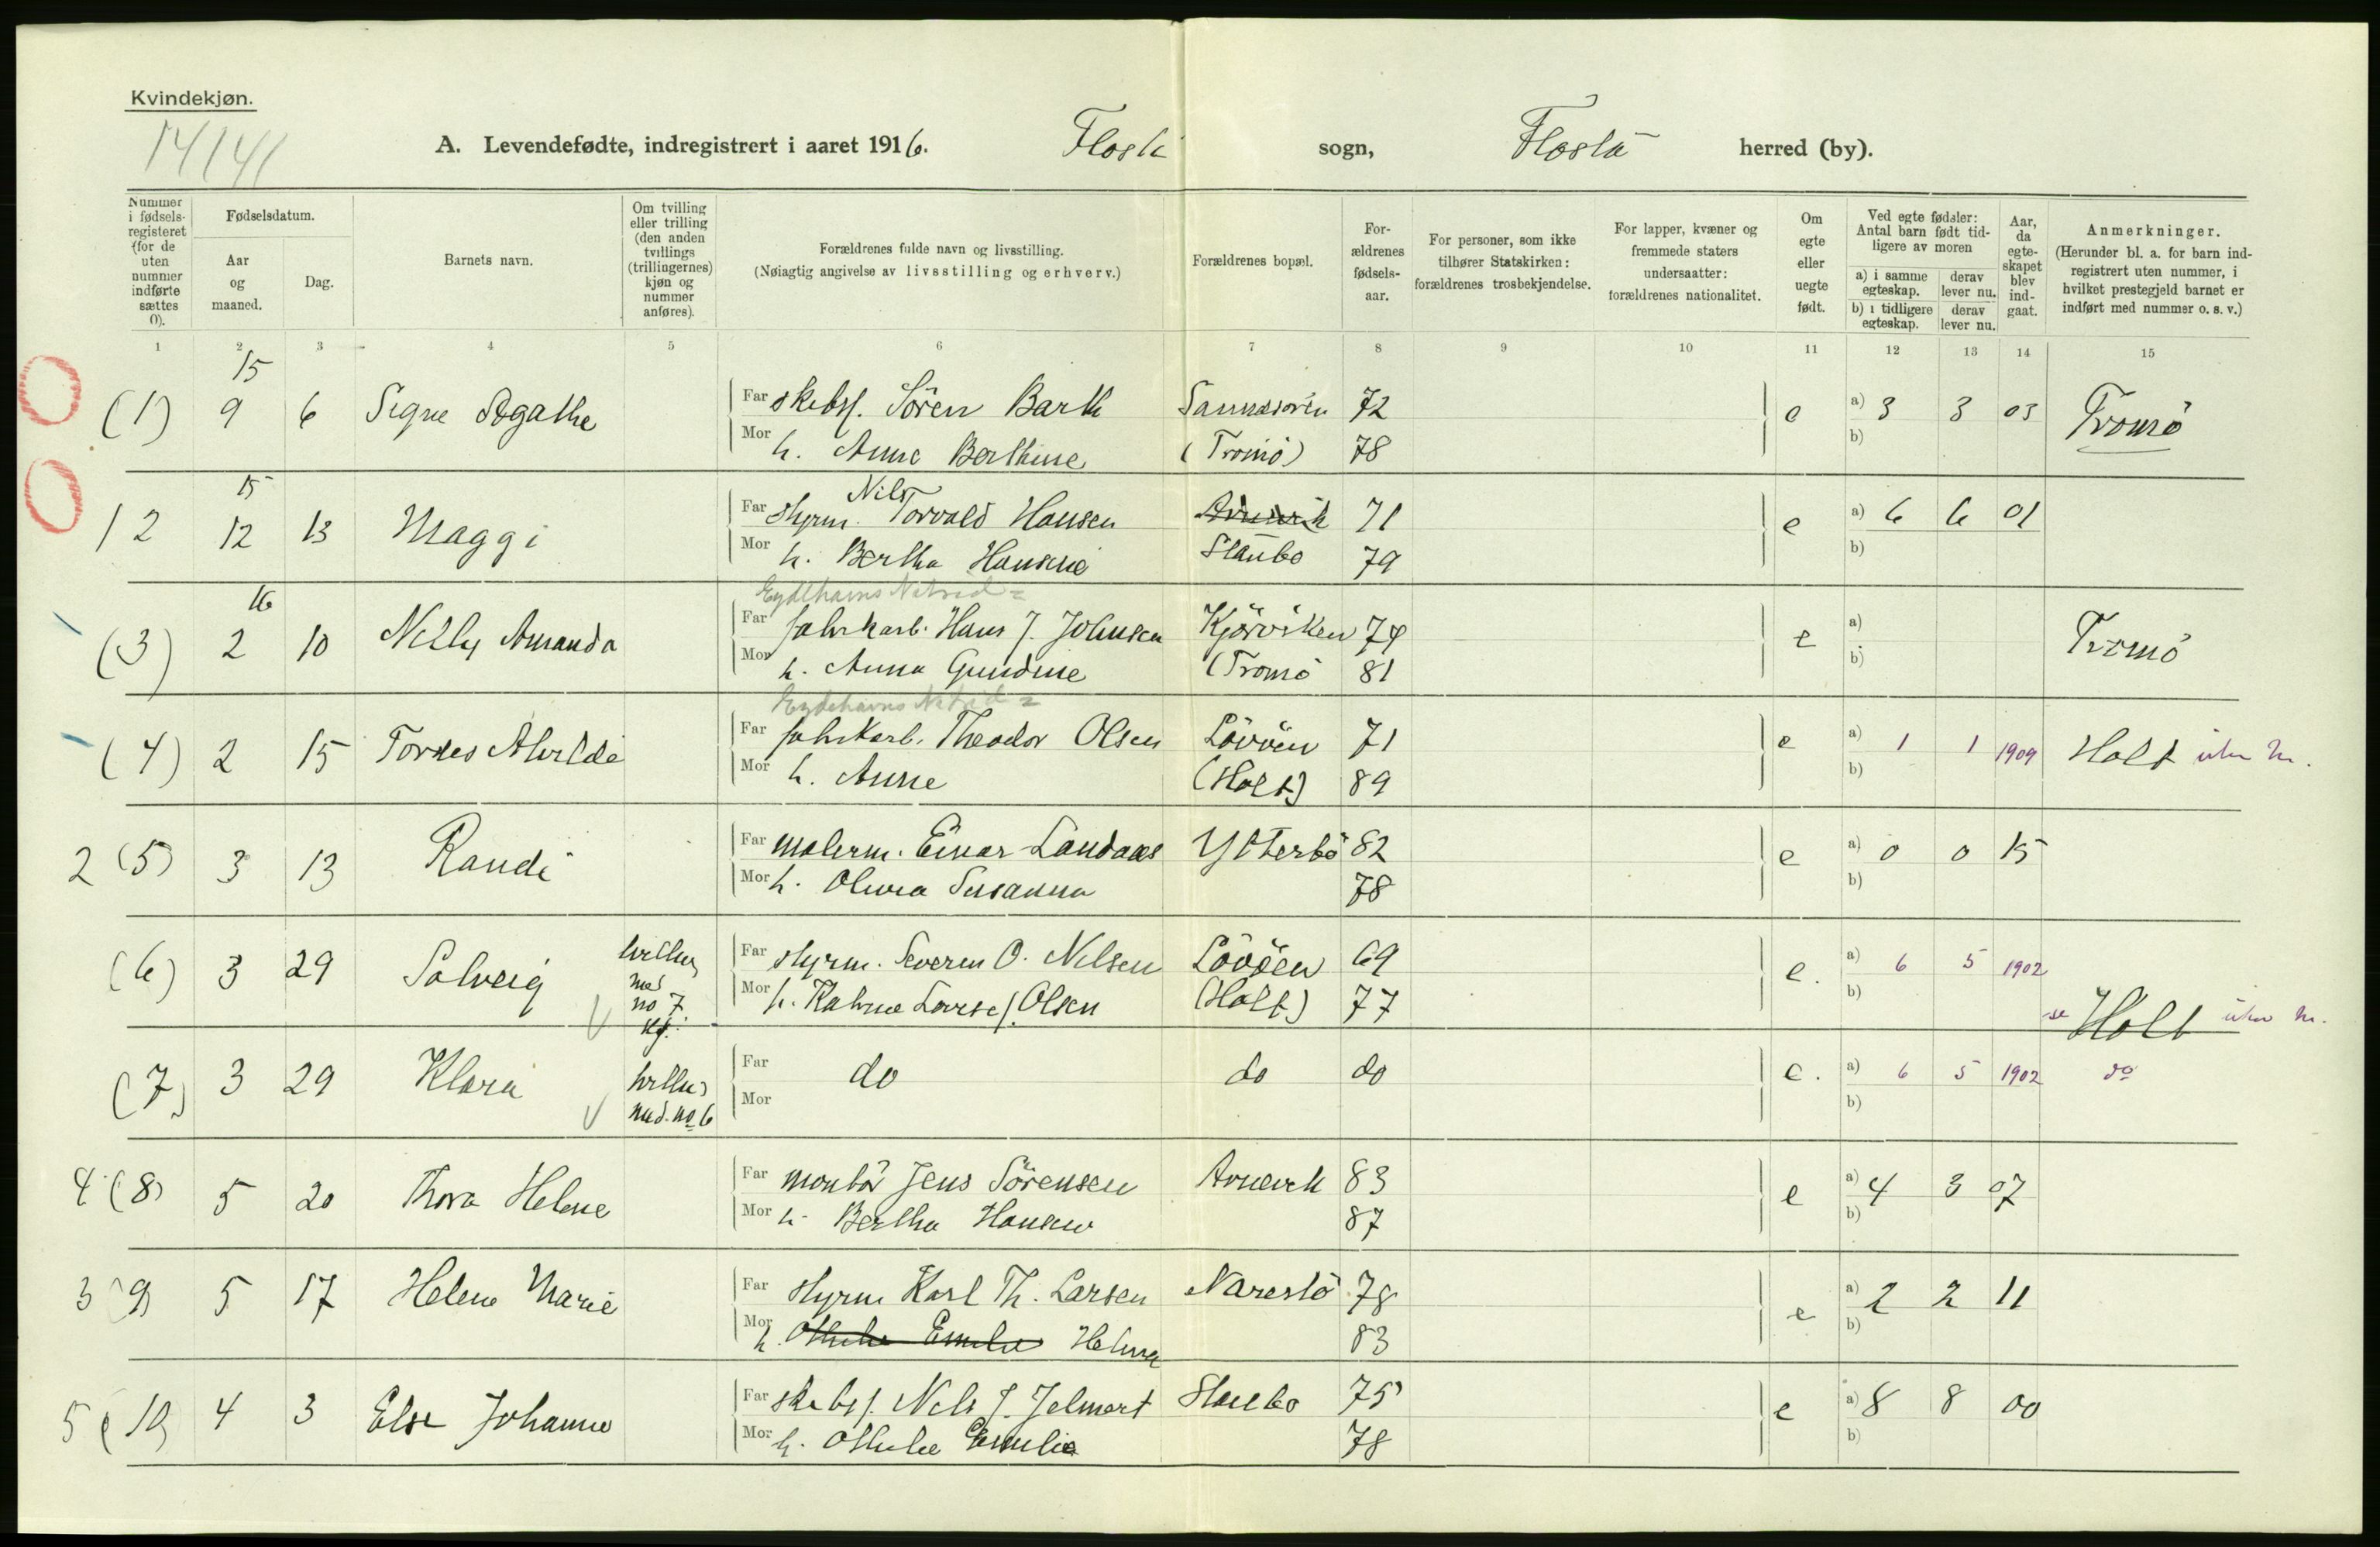 Kvindekjøn.
14141
A. Levendefødte, indregistrert i aaret 1916. Flosta sogn, Flosta herred (by).
Nummer i fødselsregisteret (for de uten nummer indførte sættes 0).
Fødselsdatum.
Aar og maaned.
Dag.
Barnets navn.
Om tvilling eller trilling (den anden tvillings (trillingernes) kjøn og nummer anføres).
Forældrenes fulde navn og livsstilling.
(Nøiagtig angivelse av livsstilling og erhverv.)
Forældrenes bopæl.
Forældrenes fødselsaar.
For personer, som ikke tilhører Statskirken: forældrenes trosbekjendelse.
For lapper, kvæner og fremmede staters undersaatter: forældrenes nationalitet.
Om egte eller uegte født.
Ved egte fødsler: Antal barn født tidligere av moren
a) i samme egteskap.
derav lever nu.
b) i tidligere egteskap.
derav lever nu.
Aar, da egteskapet blev indgaat.
Anmerkninger.
(Herunder bl. a. for barn indregistrert uten nummer, i hvilket prestegjeld barnet er indført med nummer o. s. v.)
1 2 3 4 5 6 7 8 9 10 11 12 13 14 15
15
(1) 9 6 Signe Agathe Far skibsf. Sören Barth 72 e a) 3 3 03 Tromö
Mor h. Anna Berthine (Tromö) 78 b)
15
1 2 12 13 Maggi Far styrm. Nils Torvald Hansen 71 e a) 6 6 01
Mor h. Bertha Staubo 79 b)
16
Eydehavns
(3) 2 10 Nelly Amanda Far fabrikarb. Hans J. Johnsen Kjörviken 74 e a) Tromö
Mor h. Anna Gundine (Tromö 81 b)
Eydehavns
(4) 2 15 Alvilde Far fabrikarb. Theodor Olsen Lövöen 71 e a) 1 1 1909 Holt uten nr.
Mor h. Anne (Holt) 89 b)
2 (5) 3 13 Randi Far malerm. Einar Landaas Ytterbö 82 e a) 0 0 15
Mor h. Olivia Susanna 78 b)
(6) 3 29 Solveig tvilling med no 7 Kj. Far styrm. Severin O. Nilsen Lövöen 69 e. a) 6 5 1902
Mor h. Lovise f. Olsen (Holt) 77 b) se Holt uten nr.
(7) 3 29 Klara tvilling med. no 6 Far do do do e. a) 6 5 1902 do
Mor b)
4 (8) 5 20 Thora Helene Far montör Jens Sörensen Arnevik 83 e a) 4 3 07
Mor h. Bertha 87 b)
3 (9) 5 17 Helene Marie Far styrm Karl Th. Larsen Narestö 78 e a) 2 2 11
Mor h. Othilie Emilie Helma 83 b)
5 (10) 4 3 Else Johanne Far skibsf. Nils J. Jelmert Staubo 75 e a) 8 8 00
Mor h. Othilie Emilie 78 b)